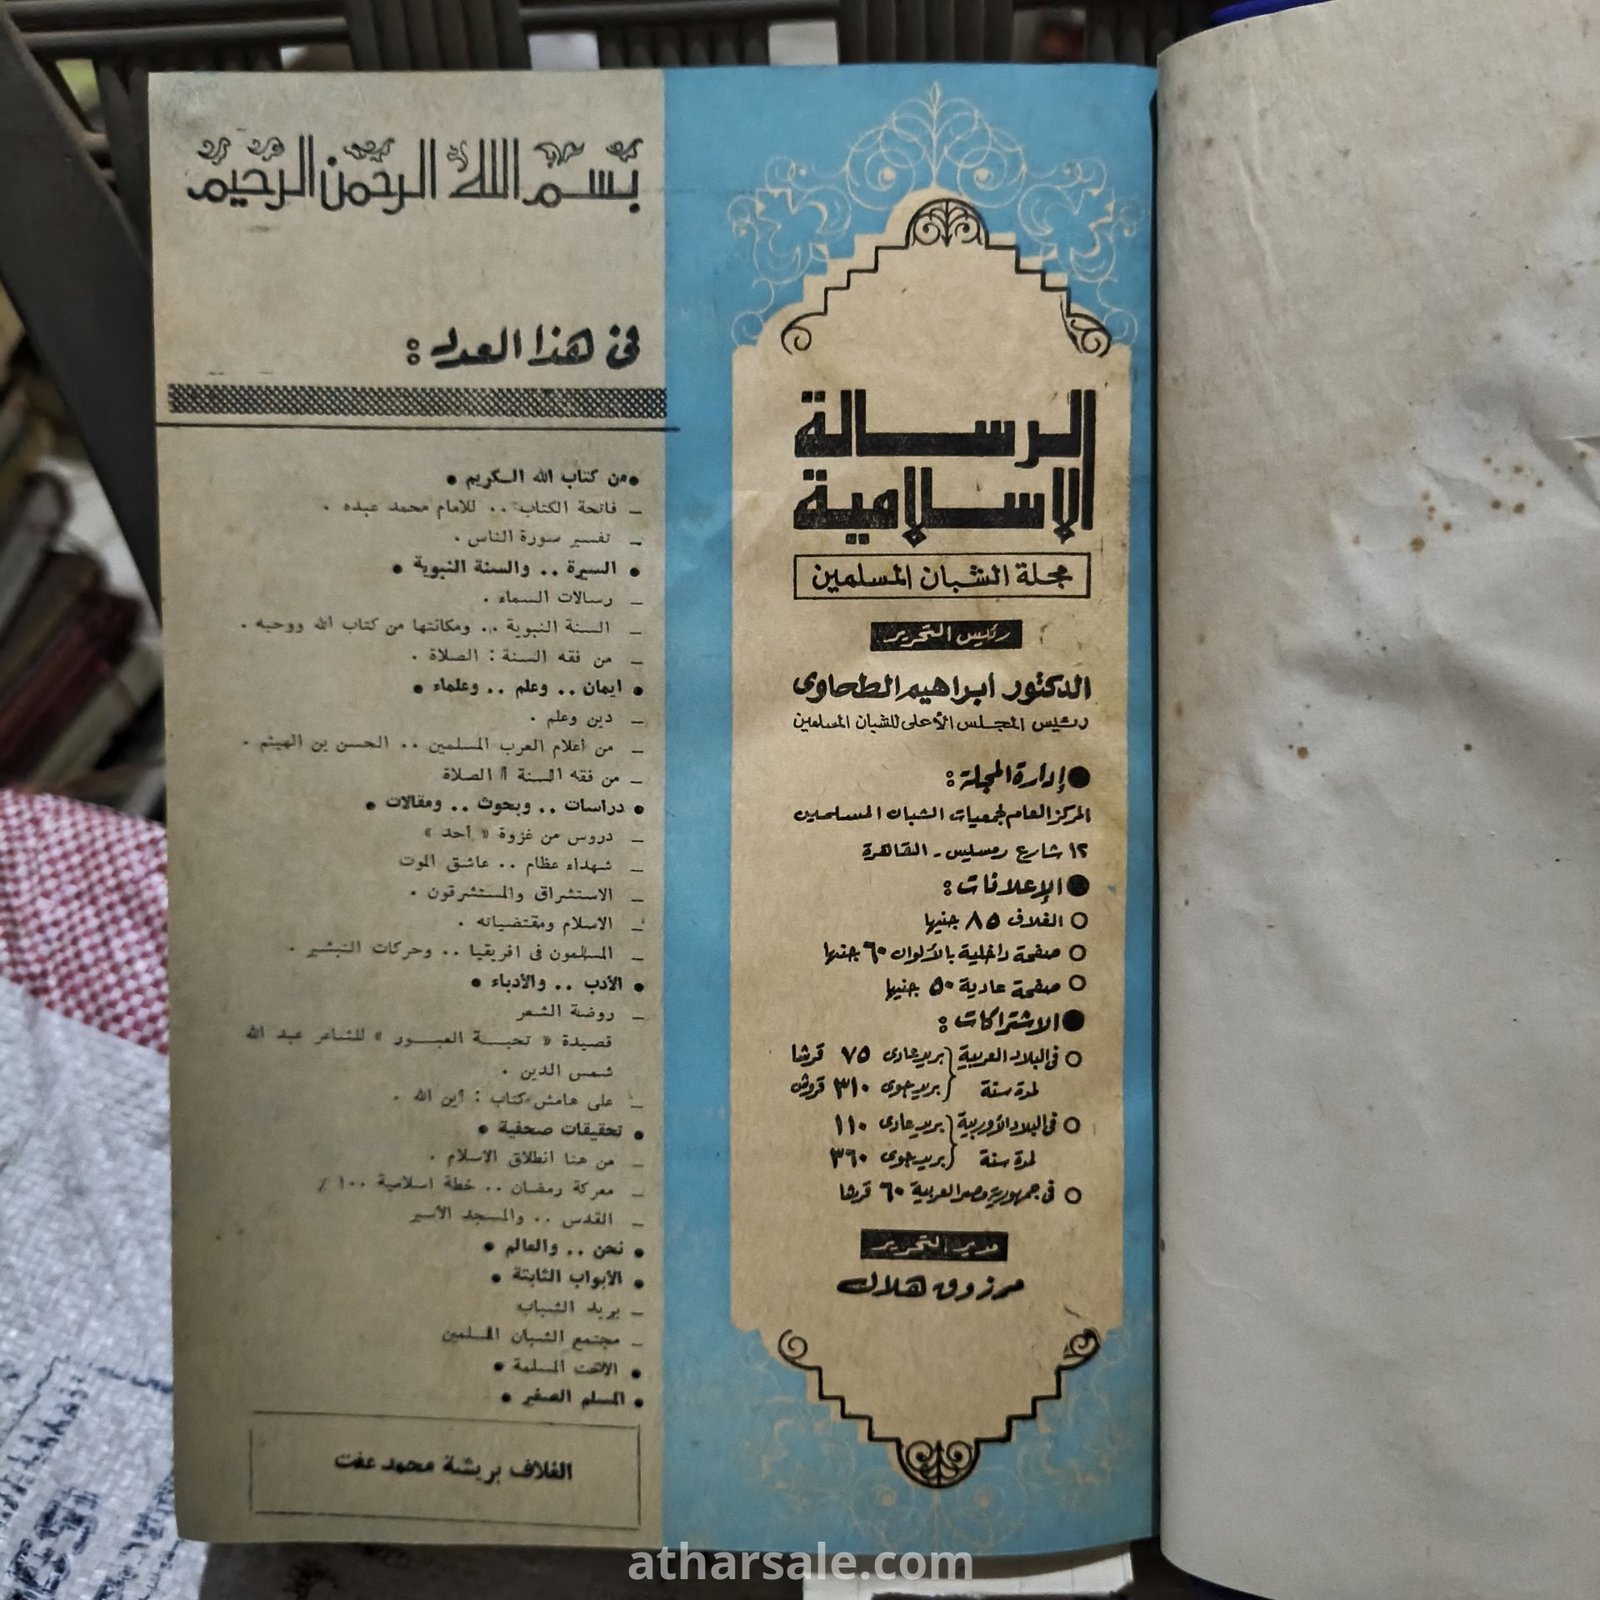 الرسالة
الاسلامية
مجلة الشبان المسلمين
رئيس التحرير
الدكتور أبراهيم الطحاوى
رئيس المجلس الأعلى للشبان المسلمين
● إدارة المجلة :
المركز العام لجمعيات الشبان المسلمين
١٢ شارع رمسيس - القاهرة
● الإعلانات :
○ الغلاف ٨٥ جنيها
○ صفحة داخلية بالألوان ٦٠ جنيها
○ صفحة عادية ٥٠ جنيها
● الاشتراكات :
○ فى البلاد العربية بريد عادى ٧٥ قرشا
لمدة سنة بريد جوى ٣١٠ قروش
○ فى البلاد الأوربية بريد عادى ١١٠
لمدة سنة بريد جوى ٣٦٠
○ فى جمهورية مصر العربية ٦٠ قرشا
مدير التحرير
مرزوق هلال
بسم الله الرحمن الرحيم
فى هذا العدد :
● من كتاب الله الكريم ●
ــ فاتحة الكتاب .. للامام محمد عبده .
ــ تفسير سورة الناس .
● السيرة .. والسنة النبوية ●
ــ رسالات السماء .
ــ السنة النبوية .. ومكانتها من كتاب الله ووحيه .
ــ من فقه السنة : الصلاة .
● ايمان .. وعلم .. وعلماء ●
ــ دين وعلم .
ــ من أعلام العرب المسلمين .. الحسن بن الهيثم .
ــ من فقه السنة : الصلاة
● دراسات .. وبحوث .. ومقالات ●
ــ دروس من غزوة « أحد »
ــ شهداء عظام .. عاشق الموت
ــ الاستشراق والمستشرقون .
ــ الاسلام ومقتضياته .
ــ المسلمون فى افريقيا .. وحركات التبشير .
● الأدب .. والأدباء ●
ــ روضة الشعر
قصيدة « تحيـــة العبـــور » للشاعر عبد الله
شمس الدين .
ــ على هامش كتاب : أين الله .
● تحقيقات صحفية ●
ــ من هنا انطلاق الاسلام .
ــ معركة رمضان .. خطة اسلامية ١٠٠ ٪
ــ القدس .. والمسجد الأسير
● نحن .. والعالم ●
● الأبواب الثابتة ●
ــ بريد الشباب
ــ مجتمع الشبان المسلمين
● الأخت المسلمة ●
● المسلم الصغير ●
الغلاف بريشة محمد عفت
atharsale.com